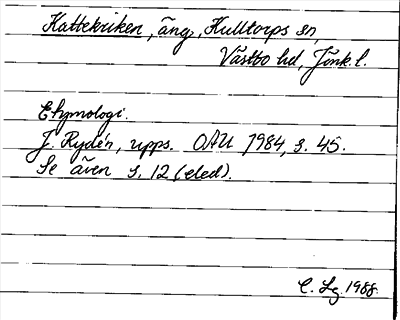 Kattekriken, äng, Kulltorps sn,
Västbo hd, Jönk. l.
Etymologi.
J. Rydén, upps. OAU 1984, s. 45.
Se även s. 12 (eled).
C. Lg 1988